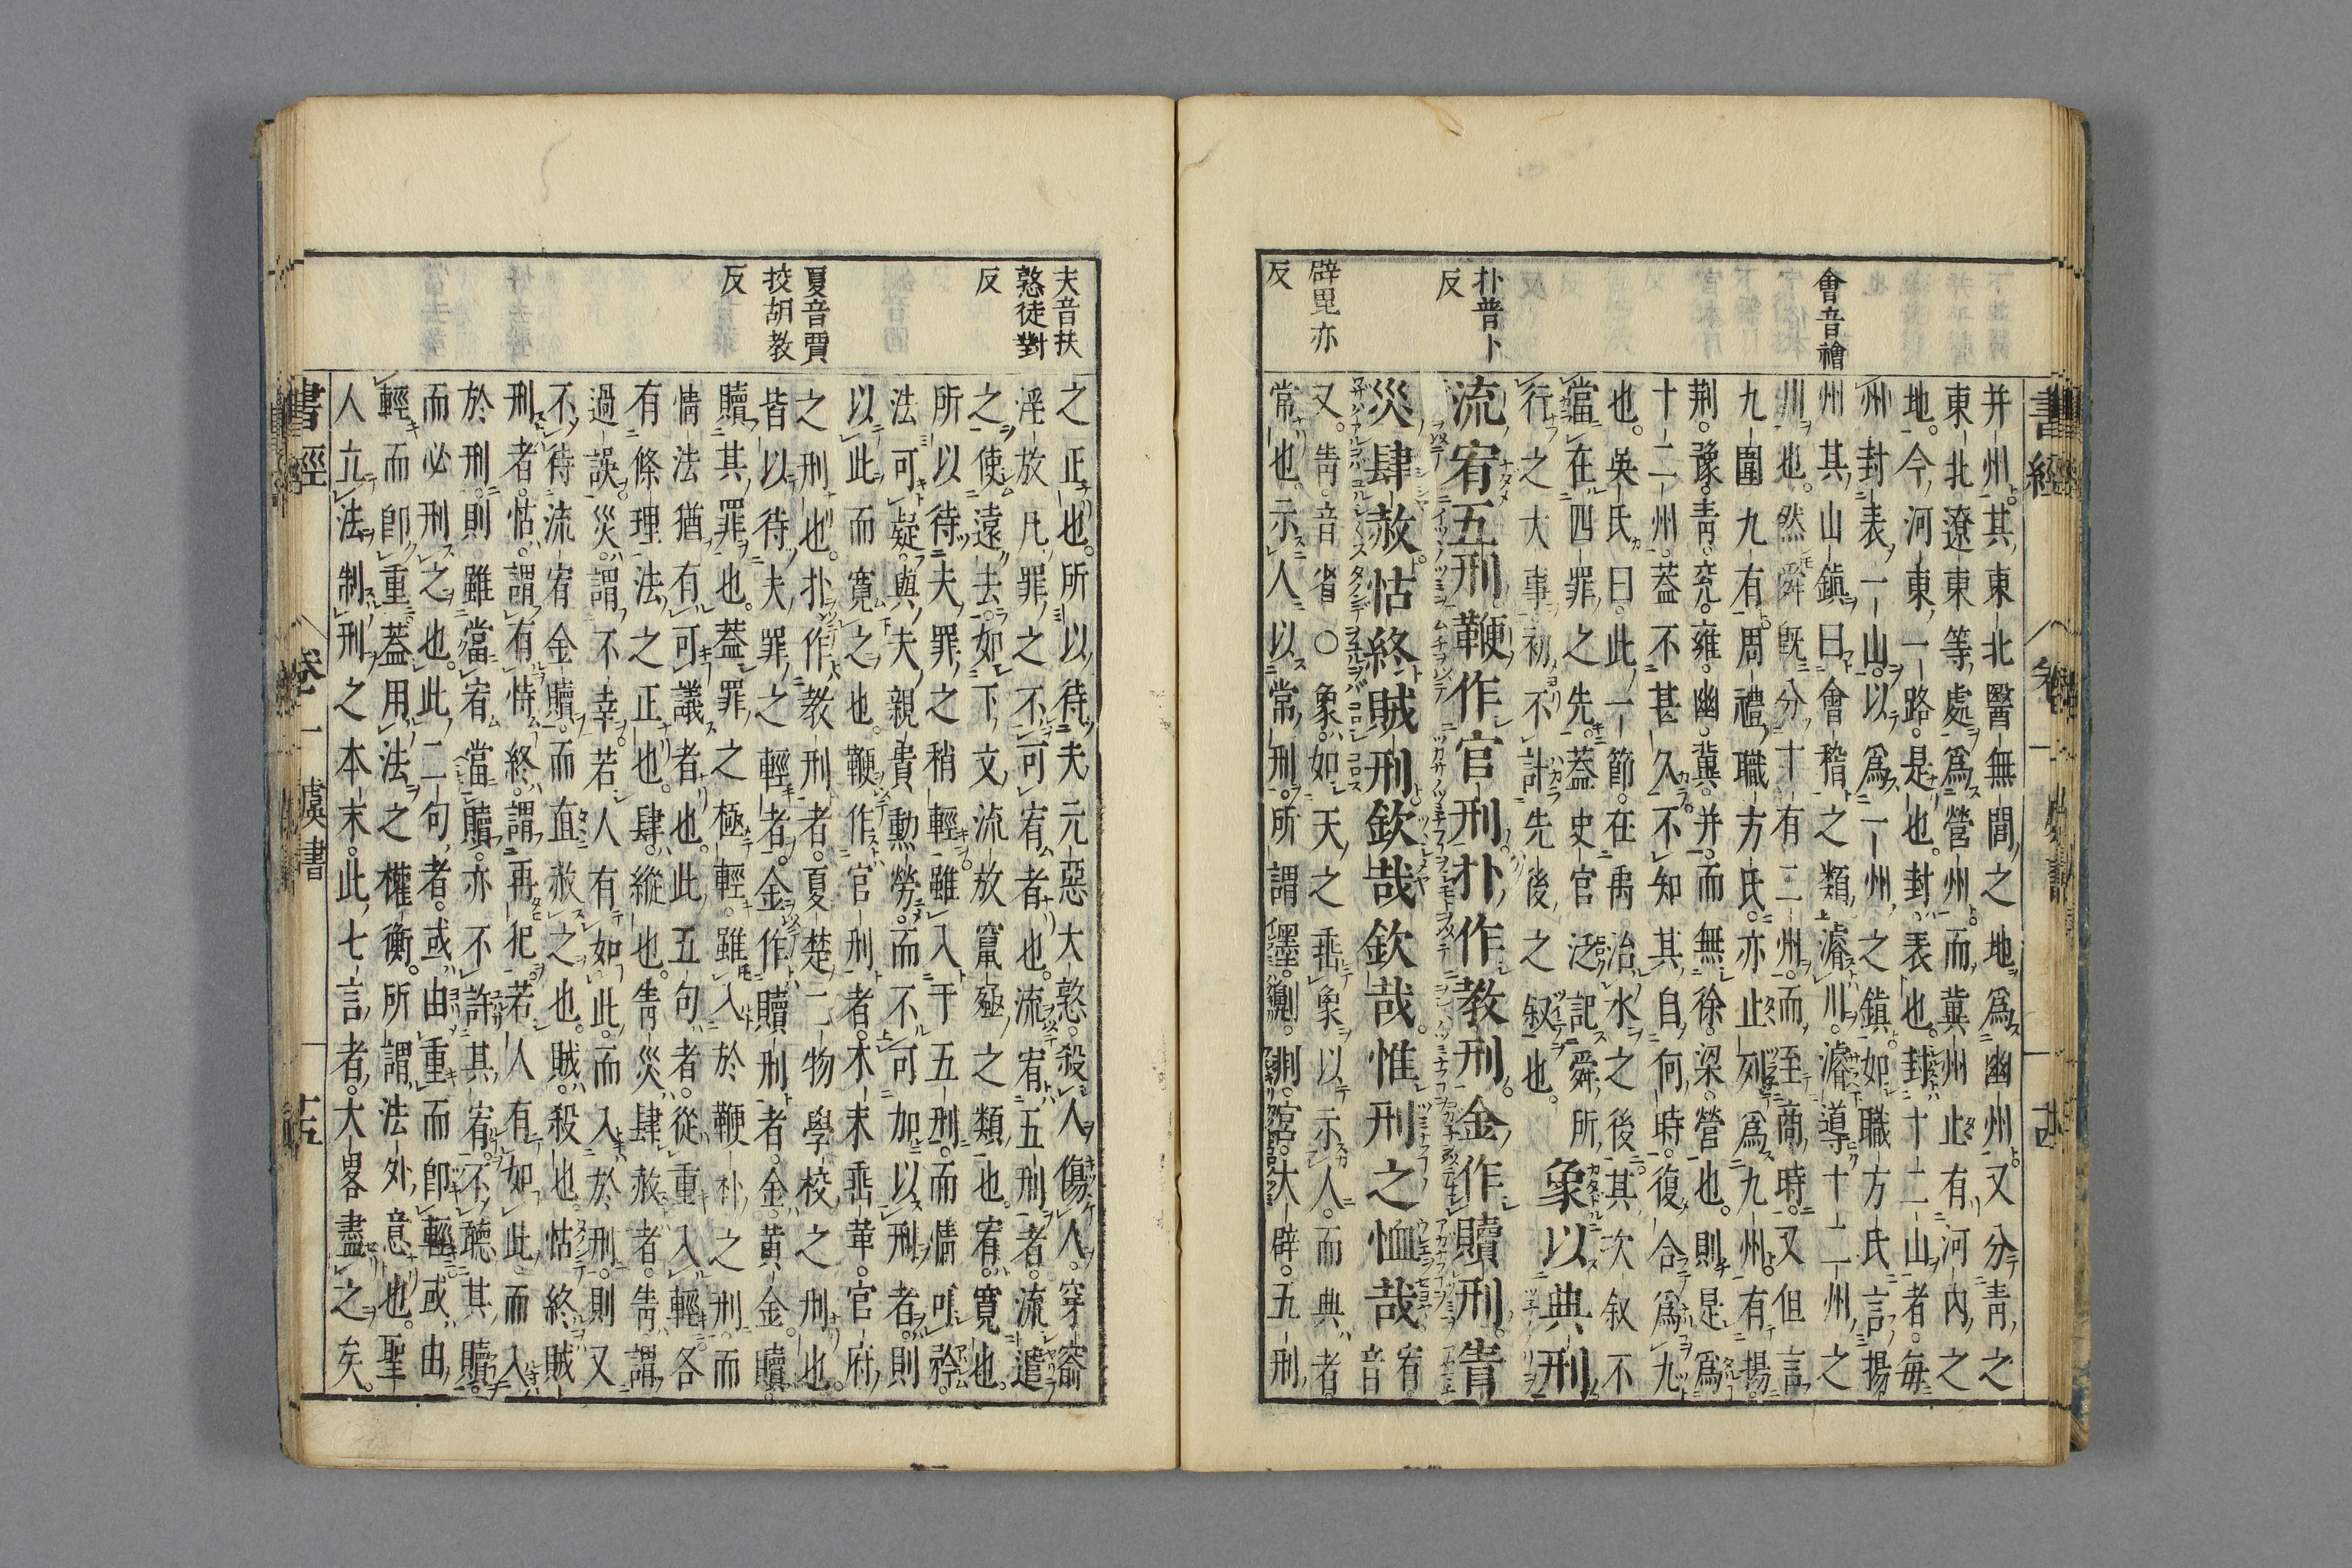 書經
卷一
虞書
十四
會音禬
扑普卜
反
辟毘亦
反
并州其東北醫無閭之地爲幽州又分靑之
東北遼東等處爲營州而冀州止有河內之
地今河東一路是也封表也封十二山者每
州封表一山以爲一州之鎭如職方氏言揚
州其山鎭曰會稽之類濬川濬導十二州之
川也然舜旣分十有二州而至商時又但言
九圍九有周禮職方氏亦止列爲九州有揚
荆豫靑兖雍幽冀并而無徐梁營也則是爲
十二州蓋不甚久不知其自何時復合爲九
也吳氏曰此一節在禹治水之後其次叙不
當在四罪之先蓋史官泛記舜所
行之大事初不計先後之叙也
象以典刑
流宥五刑鞭作官刑扑作教刑金作贖刑眚
災肆赦怙終賊刑欽哉欽哉惟刑之恤哉
宥音
又眚音省○象如天之垂象以示人而典者
常也示人以常刑所謂墨劓剕宮大辟五刑
夫音扶
憝徒對
反
夏音賈
挍胡教
反
之正也所以待夫元惡大憝殺人傷人穿窬
淫放凡罪之不可宥者也流宥五刑者流遣
之使遠去如下文流放竄殛之類也宥寬也
所以待夫罪之稍輕雖入于五刑而情可矜
法可疑與夫親貴勳勞而不可加以刑者則
以此而寬之也鞭作官刑者木末垂革官府
之刑也扑作教刑者夏楚二物學校之刑也
皆以待夫罪之輕者金作贖刑者金黃金贖
贖其罪也蓋罪之極輕雖入於鞭朴之刑而
情法猶有可議者也此五句者從重入輕各
有條理法之正也肆縱也眚災肆赦者眚謂
過誤災謂不幸若人有如此而入於刑則又
不待流宥金贖而直赦之也賊殺也怙終賊
刑者怙謂有恃終謂再犯若人有如此而入
於刑則雖當宥當贖亦不許其宥不聽其贖
而必刑之也此二句者或由重而卽輕或由
輕而卽重蓋用法之權衡所謂法外意也聖
人立法制刑之本末此七言者大畧盡之矣
書經
卷一
虞書
十五